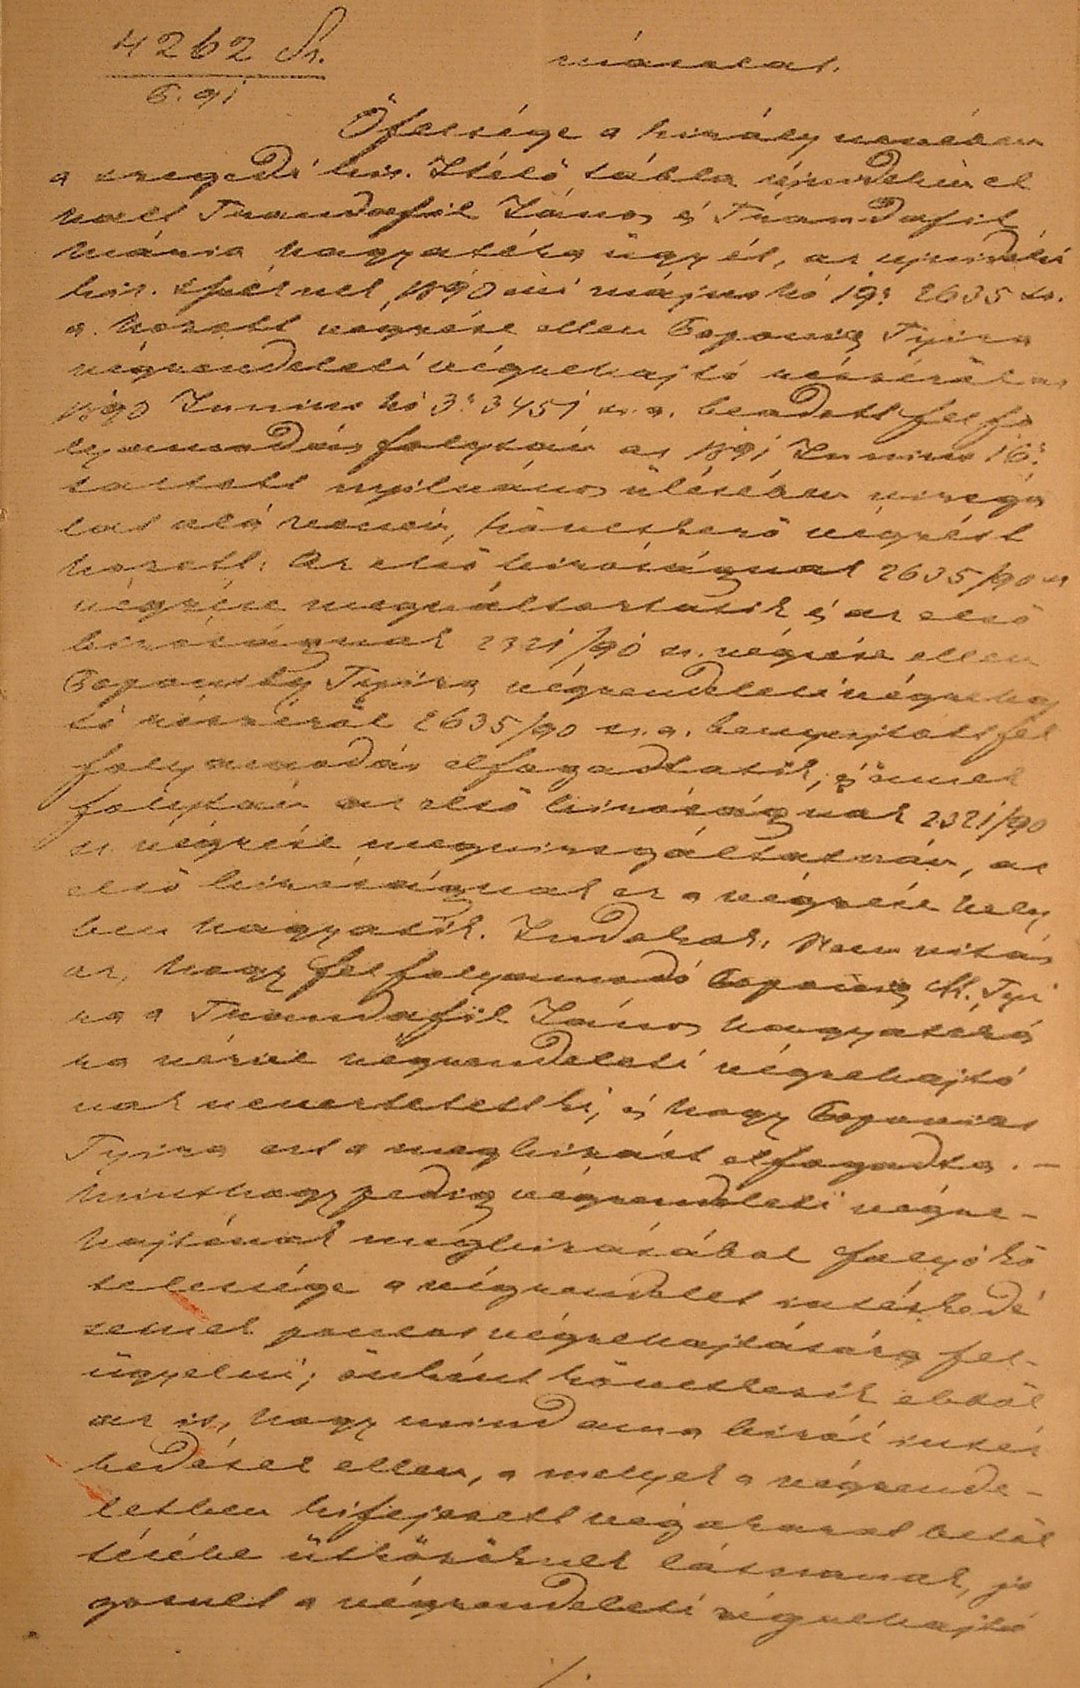 4262 Sz.
P. 91
másolat.
Őfelsége a király nevében
a szegedi kir. Itélő tábla újvidékin el
halt Trandafil János és Trandafil
Mária hagyatéka ügyét, az ujvidéki
kir. tszéknél, 1890 évi május hó 19: 2635 sz.
a. hozott végzése ellen Popovics Tyira
végrendeleti végrehajtó részéről az
1890 Junius hó 3: 3451 sz. a. beadott felfo
lyamodás folytán az 1891 Junius 16:
tartott nyilvános ülésében vizsgá
lat alá vevén, következő végzést
hozott: Az első biróságnak 2635/90 sz
végzése megváltoztatik és az első
biróságnak 2321/90 sz. végzése ellen
Popovics Tyira végrendeleti végrehaj
tó részéről 2635/90 sz. a. benyujtott fel
folyamodás elfogadtatik, és ennek
folytán az első biróságnak 2321/90
sz végzése megvizsgáltatván, az
első biróságnak ez a végzése hely
ben hagyatik. Indokok. Nem vitás
az, hogy felfolyamodó Popovics M. Tyi
ra a Trandafil János hagyatéká
ra nézve végrendeleti végrehajtó
nak neveztetett ki, és hogy Popovics
Tyira ezt a megbizást elfogadta. —
Minthogy pedig végrendeleti végre-
hajtónak megbizásából folyó kö
telessége a végrendelet intézkedé
seinek pontos végrehajtására fel-
ügyelni; önként következik ebből
az is, hogy mind ama birói intéz
kedések ellen, a melyek a végrende-
letben kifejezett végakarat betöl
tésébe ütközőknek látszanak, jo
gosult a végrendeleti végrehajtó
./.